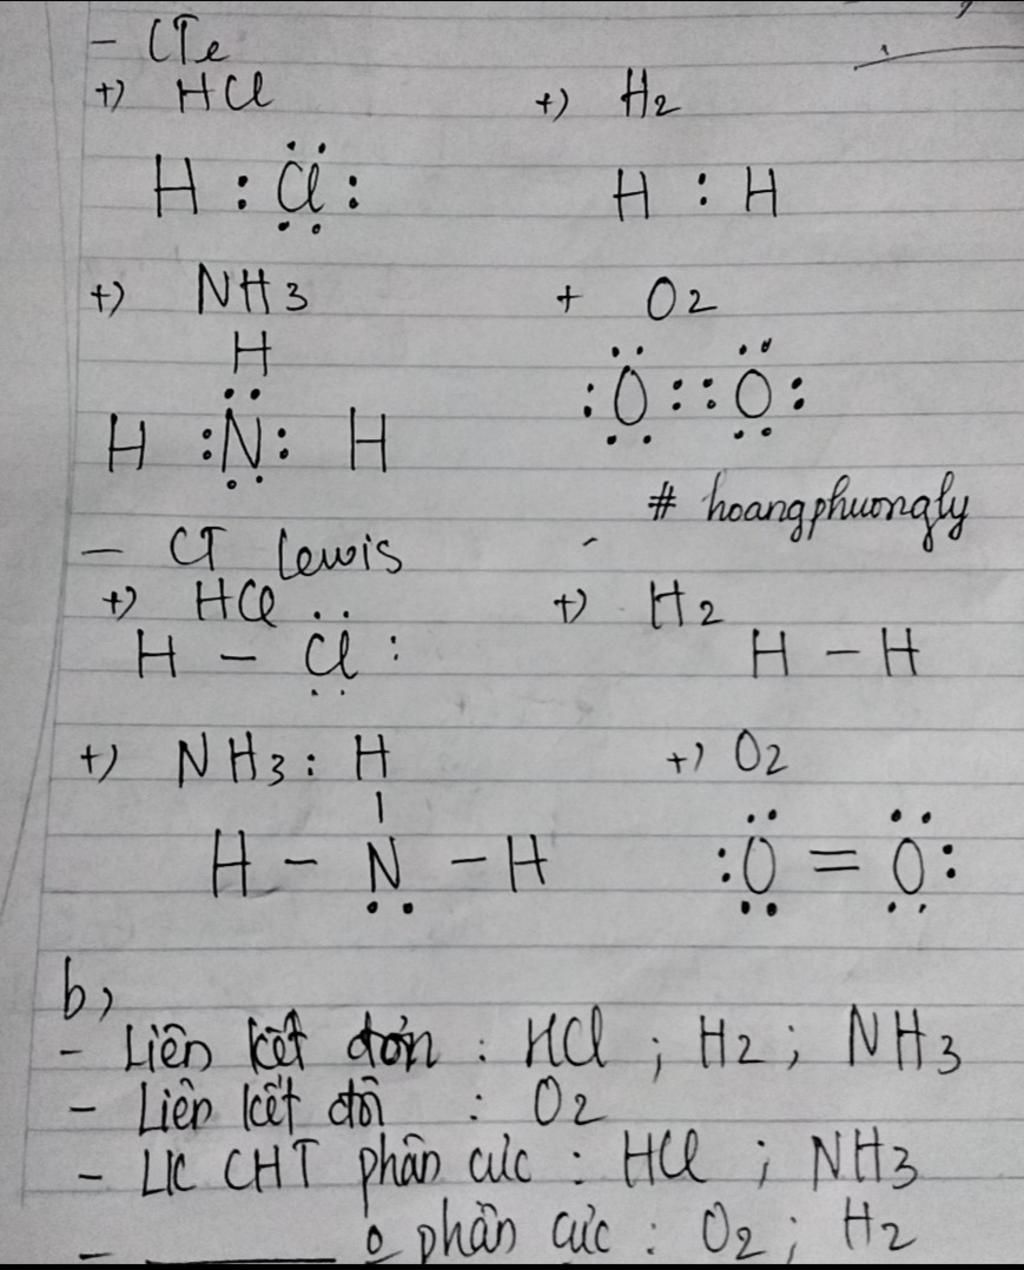 - CTe
+) HCl +) H2
H : Cl : H : H
+) NH3 + O2
H
H :N: H :O::O:
# hoangphuongly
- CT Lewis
+) HCl +) H2
H - Cl : H - H
+) NH3 : H +) O2
H - N - H :O = O:
b)
- Liên kết đơn : HCl ; H2 ; NH3
- Liên kết đôi : O2
- LK CHT phân cực : HCl ; NH3
- ______ o phân cực : O2 ; H2